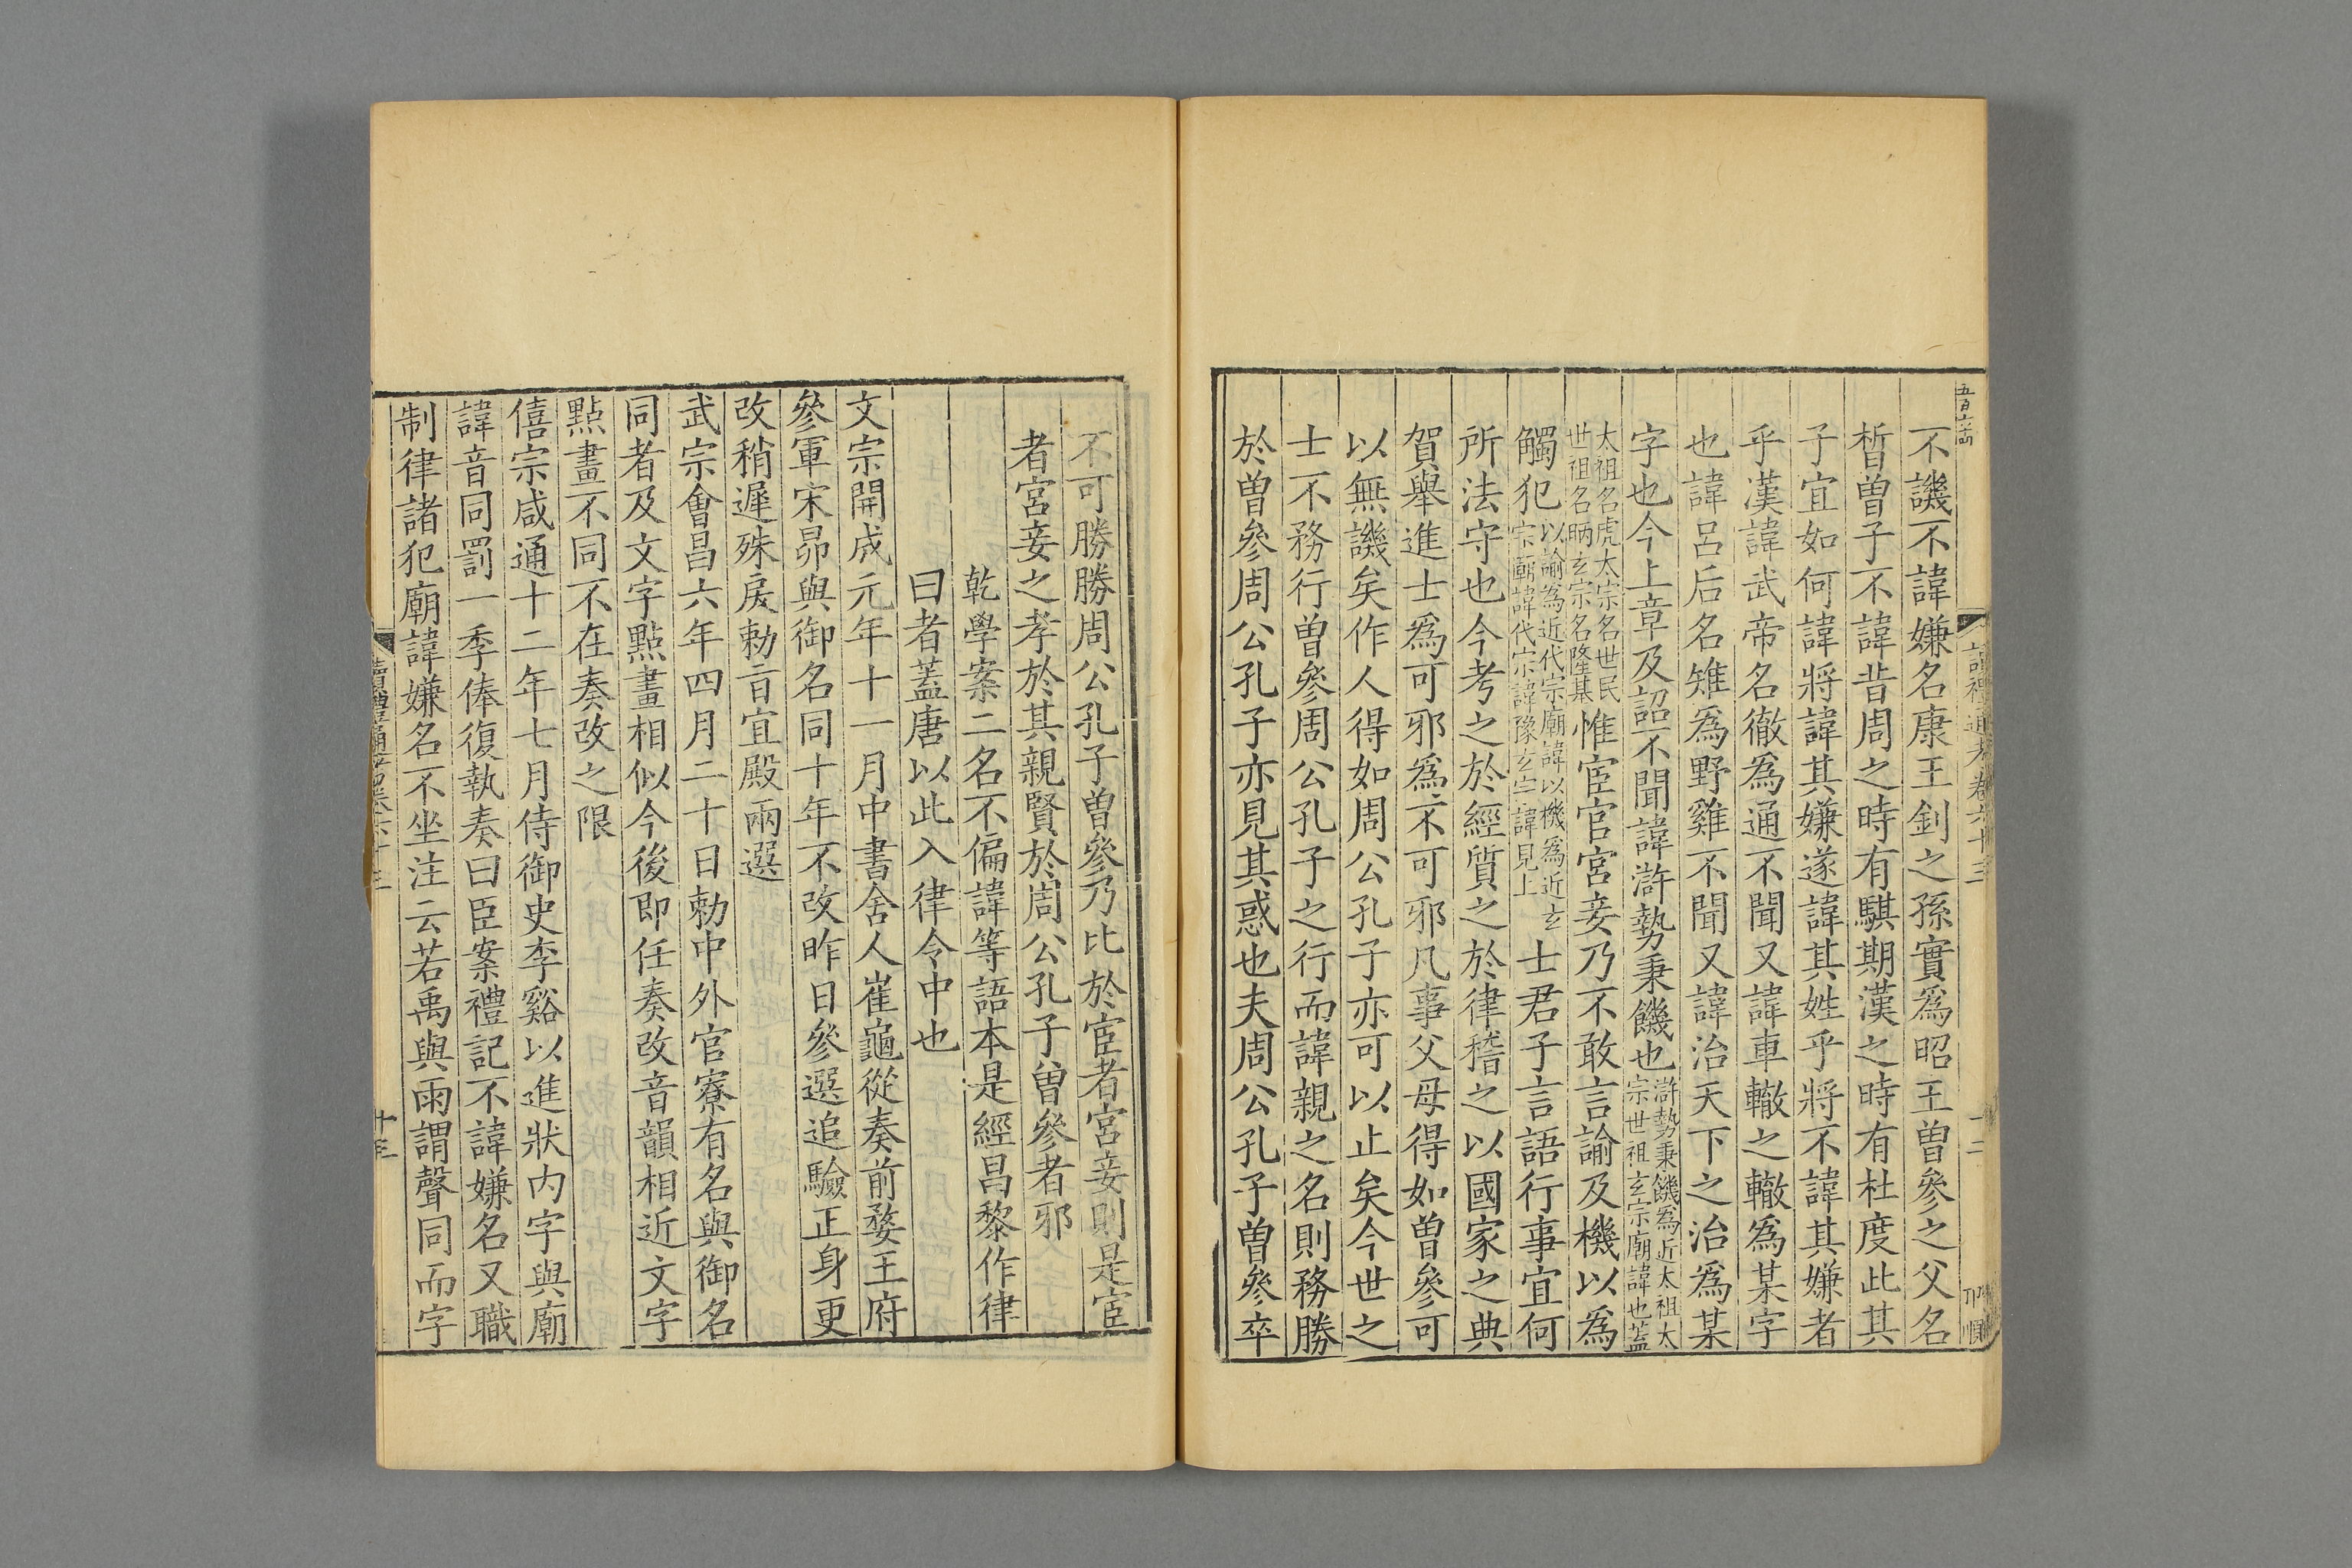 讀禮通考卷六十三
十二
不譏不諱嫌名康王釗之孫實爲昭王曾參之父名
晳曾子不諱昔周之時有騏期漢之時有杜度此其
子宜如何諱將諱其嫌遂諱其姓乎將不諱其嫌者
乎漢諱武帝名徹爲通不聞又諱車轍之轍爲某字
也諱呂后名雉爲野雞不聞又諱治天下之治爲某
字也今上章及詔不聞諱滸勢秉饑也滸勢秉饑爲近太祖太
宗世祖玄宗廟諱也蓋
太祖名虎太宗名世民
世祖名昞玄宗名隆基惟宦官宮妾乃不敢言諭及機以爲
觸犯以諭爲近代宗廟諱以機爲近玄
宗廟諱代宗諱豫玄宗諱見上士君子言語行事宜何
所法守也今考之於經質之於律稽之以國家之典
賀舉進士爲可邪爲不可邪凡事父母得如曾參可
以無譏矣作人得如周公孔子亦可以止矣今世之
士不務行曾參周公孔子之行而諱親之名則務勝
於曾參周公孔子亦見其惑也夫周公孔子曾參卒
不可勝勝周公孔子曾參乃比於宦者宮妾則是宦
者宮妾之孝於其親賢於周公孔子曾參者邪
乾學案二名不偏諱等語本是經昌黎作律
曰者蓋唐以此入律令中也
文宗開成元年十一月中書舍人崔龜從奏前婺王府
參軍宋昂與御名同十年不改昨日參選追驗正身更
改稍遲殊戾勅旨宜殿兩選
武宗會昌六年四月二十日勅中外官寮有名與御名
同者及文字點畫相似今後即任奏改音韻相近文字
點畫不同不在奏改之限
僖宗咸通十二年七月侍御史李谿以進狀内字與廟
諱音同罰一季俸復執奏曰臣案禮記不諱嫌名又職
制律諸犯廟諱嫌名不坐注云若禹與雨謂聲同而字
讀禮通考卷六十三
十三